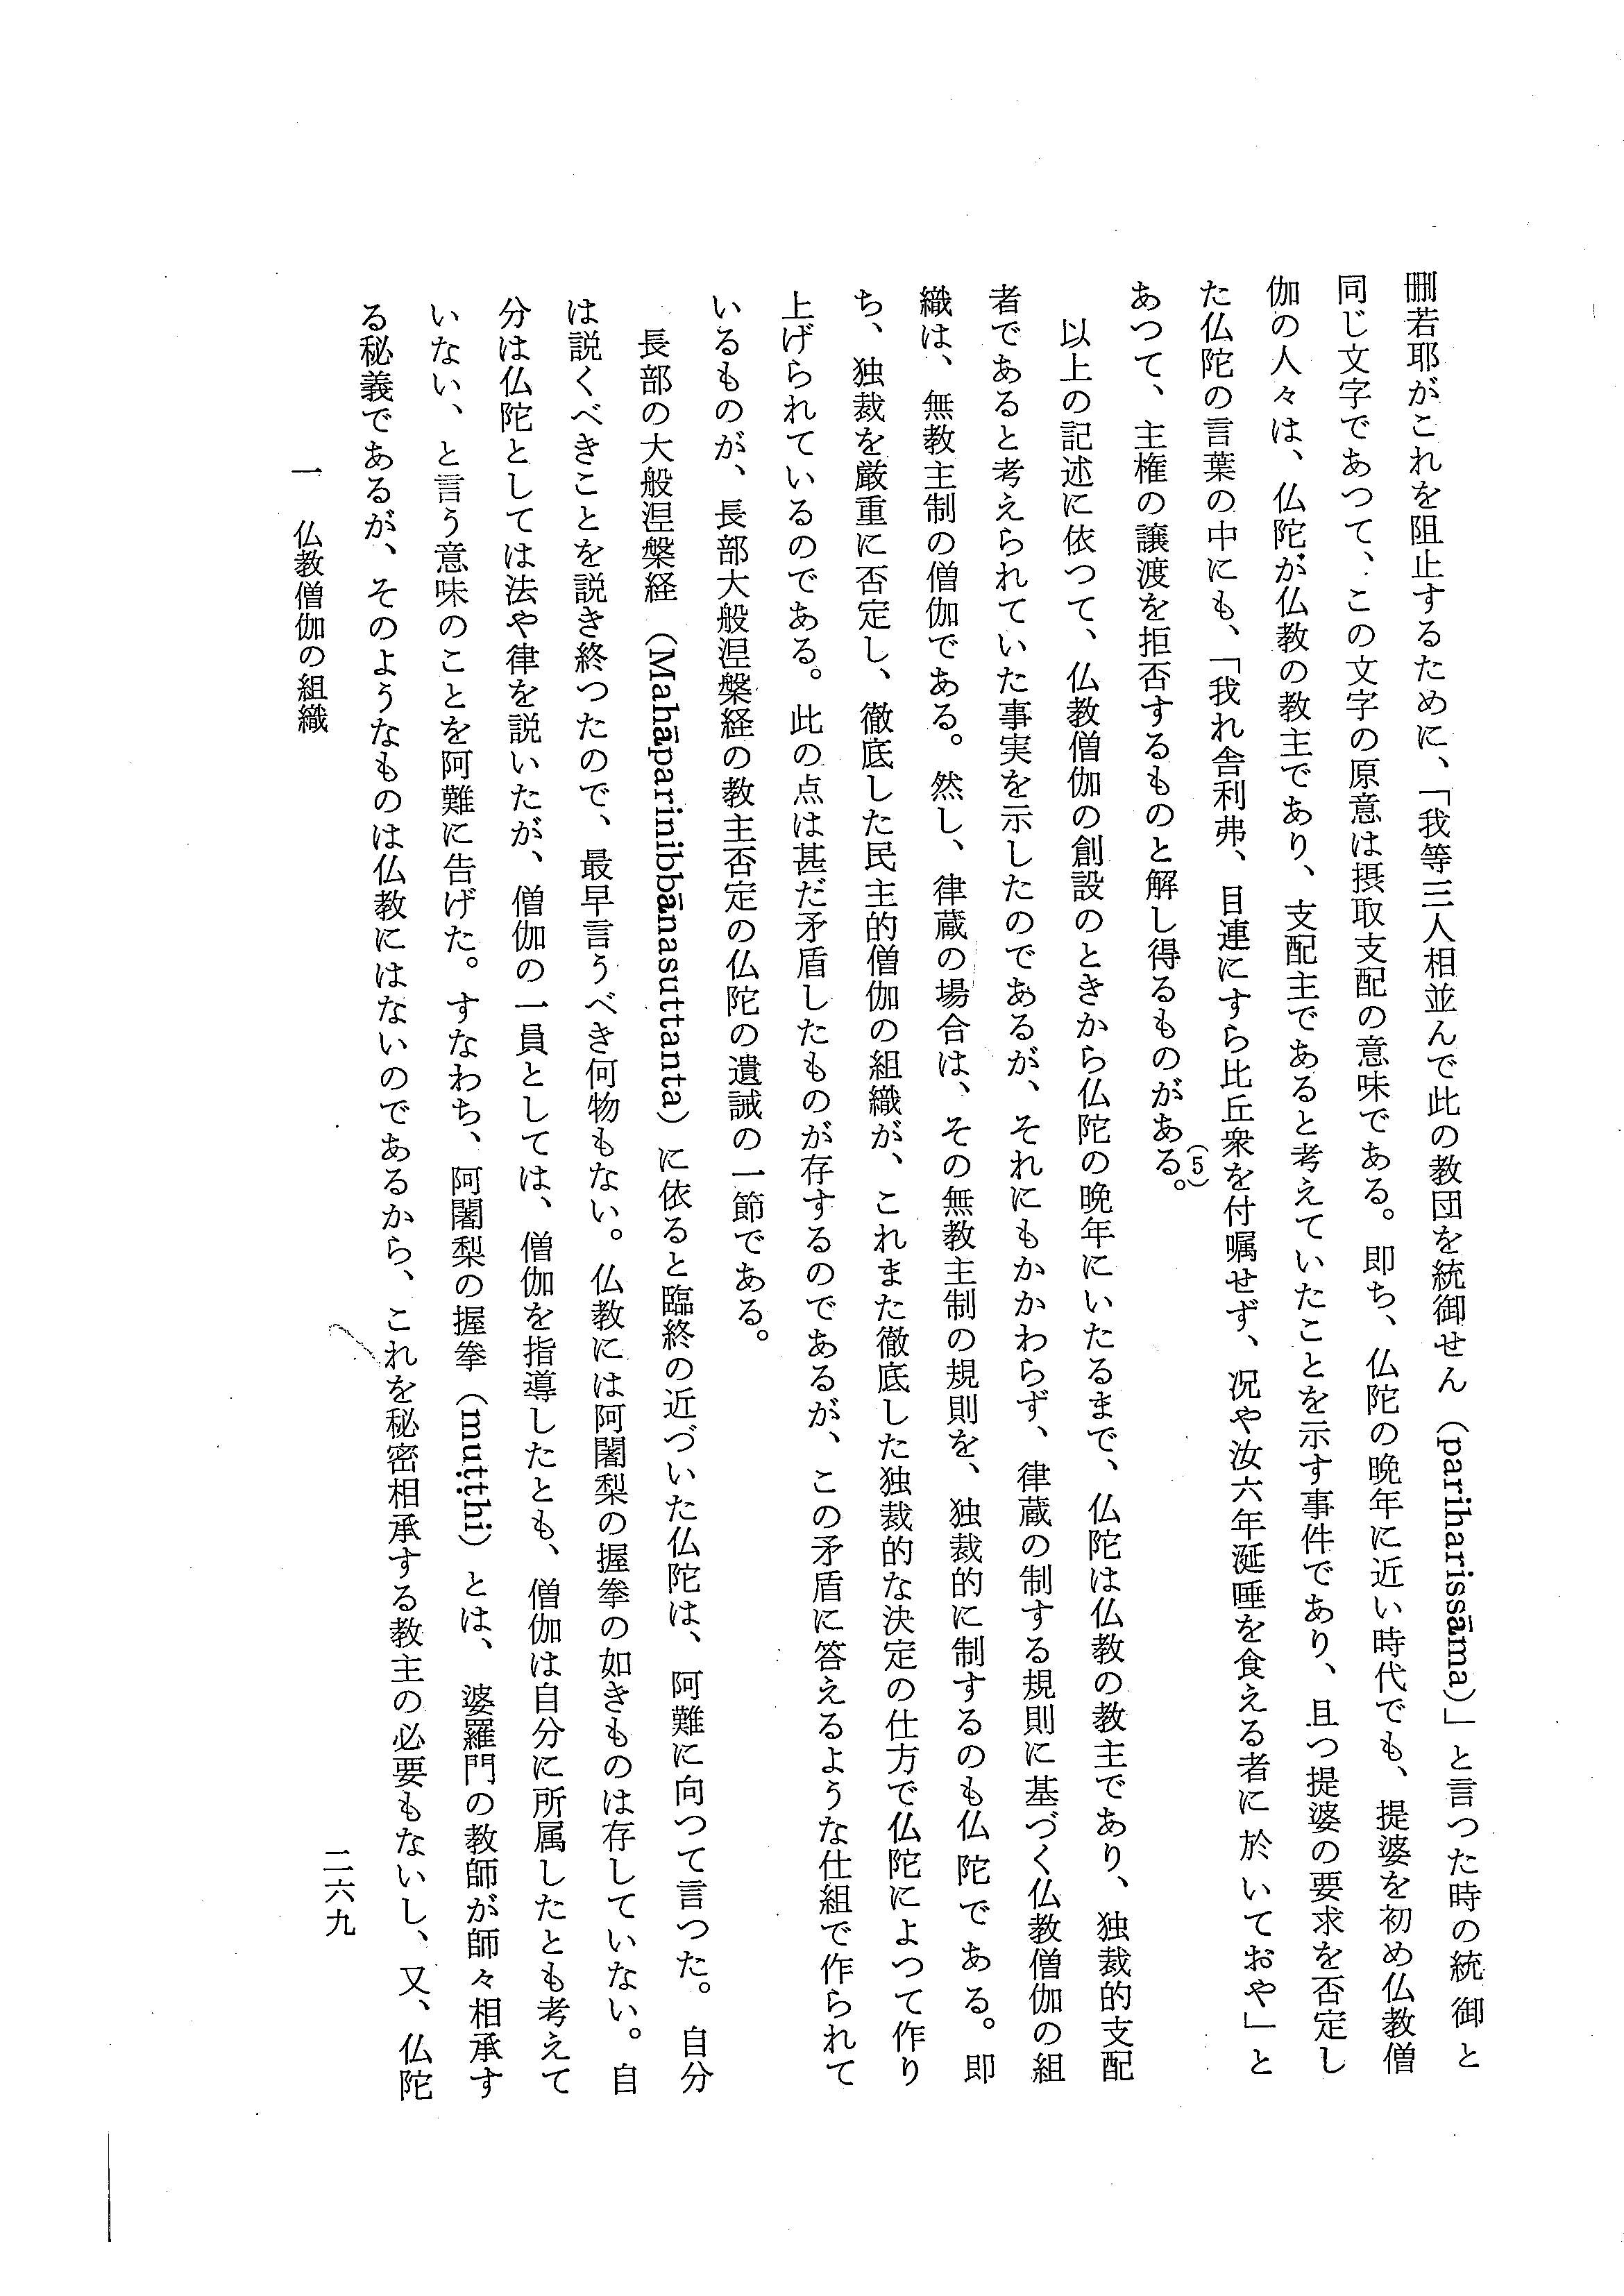 刪若耶がこれを阻止するために、「我等三人相並んで此の教団を統御せん（pariharissāma）」と言つた時の統御と
同じ文字であつて、この文字の原意は摂取支配の意味である。即ち、仏陀の晩年に近い時代でも、提婆を初め仏教僧
伽の人々は、仏陀が仏教の教主であり、支配主であると考えていたことを示す事件であり、且つ提婆の要求を否定し
た仏陀の言葉の中にも、「我れ舎利弗、目連にすら比丘衆を付嘱せず、況や汝六年涎唾を食える者に於いておや」と
あつて、主権の譲渡を拒否するものと解し得るものがある。（5）
以上の記述に依つて、仏教僧伽の創設のときから仏陀の晩年にいたるまで、仏陀は仏教の教主であり、独裁的支配
者であると考えられていた事実を示したのであるが、それにもかかわらず、律蔵の制する規則に基づく仏教僧伽の組
織は、無教主制の僧伽である。然し、律蔵の場合は、その無教主制の規則を、独裁的に制するのも仏陀である。即
ち、独裁を厳重に否定し、徹底した民主的僧伽の組織が、これまた徹底した独裁的な決定の仕方で仏陀によつて作り
上げられているのである。此の点は甚だ矛盾したものが存するのであるが、この矛盾に答えるような仕組で作られて
いるものが、長部大般涅槃経の教主否定の仏陀の遺誡の一節である。
長部の大般涅槃経（Mahāparinibbānasuttanta）に依ると臨終の近づいた仏陀は、阿難に向つて言つた。自分
は説くべきことを説き終つたので、最早言うべき何物もない。仏教には阿闍梨の握拳の如きものは存していない。自
分は仏陀としては法や律を説いたが、僧伽の一員としては、僧伽を指導したとも、僧伽は自分に所属したとも考えて
いない、と言う意味のことを阿難に告げた。すなわち、阿闍梨の握拳（muṭṭhi）とは、婆羅門の教師が師々相承す
る秘義であるが、そのようなものは仏教にはないのであるから、これを秘密相承する教主の必要もないし、又、仏陀
一　仏教僧伽の組織
二六九